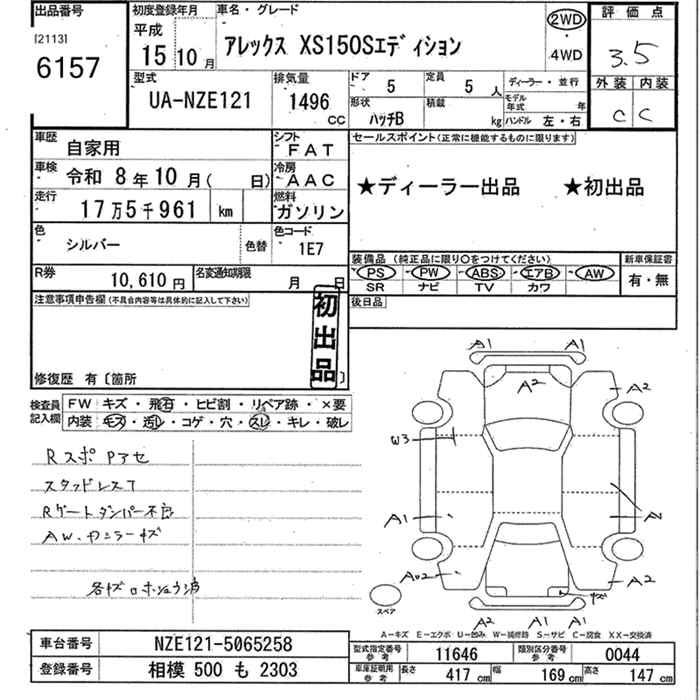 出品番号
[2113]
6157
初度登録年月
平成
15 10 月
車名・グレード
アレックス XS150Sエディション
2WD
・
4WD
評価点
3.5
外装 内装
C C
型式
UA-NZE121
排気量
1496
CC
ドア
5
定員
5 人
形状
ハッチB
積載
kg
ディーラー・並行
モデル
年式 年
ハンドル 左・右
車歴
自家用
シフト
FAT
車検
令和 8年10月( 日)
冷房
AAC
走行
17万5千961 km
燃料
ガソリン
色
シルバー
色替
色コード
1E7
R券
10,610 円
名変通知期限
月 日
セールスポイント(正常に機能するものに限ります)
★ディーラー出品 ★初出品
装備品 (純正品に限り○をつけてください)
PS PW ABS エアB AW
SR ナビ TV カワ
新車保証書
有・無
後日品
注意事項申告欄(不具合内容等は具体的に記入して下さい)
初出品
修復歴 有〔箇所 〕
検査員
記入欄
FW キズ・飛石・ヒビ割・リペア跡・×要
内装 キズ・汚レ・コゲ・穴・スレ・キレ・破レ
Rスポ Pアセ
スタッドレスT
Rゲートダンパー不良
AW.カニラーキズ
A1 A1
A2
A2
W3
A1
A2
A2
A2 A1 A1
キズ
スペア
A-キズ E-エクボ U-凹み W-補修跡 S-サビ C-腐食 XX-交換済
車台番号
NZE121-5065258
登録番号
相模 500 も 2303
型式指定番号
参考
11646
類別区分番号
参考
0044
車庫証明用
参考
長さ
417 cm
幅
169 cm
高さ
147 cm